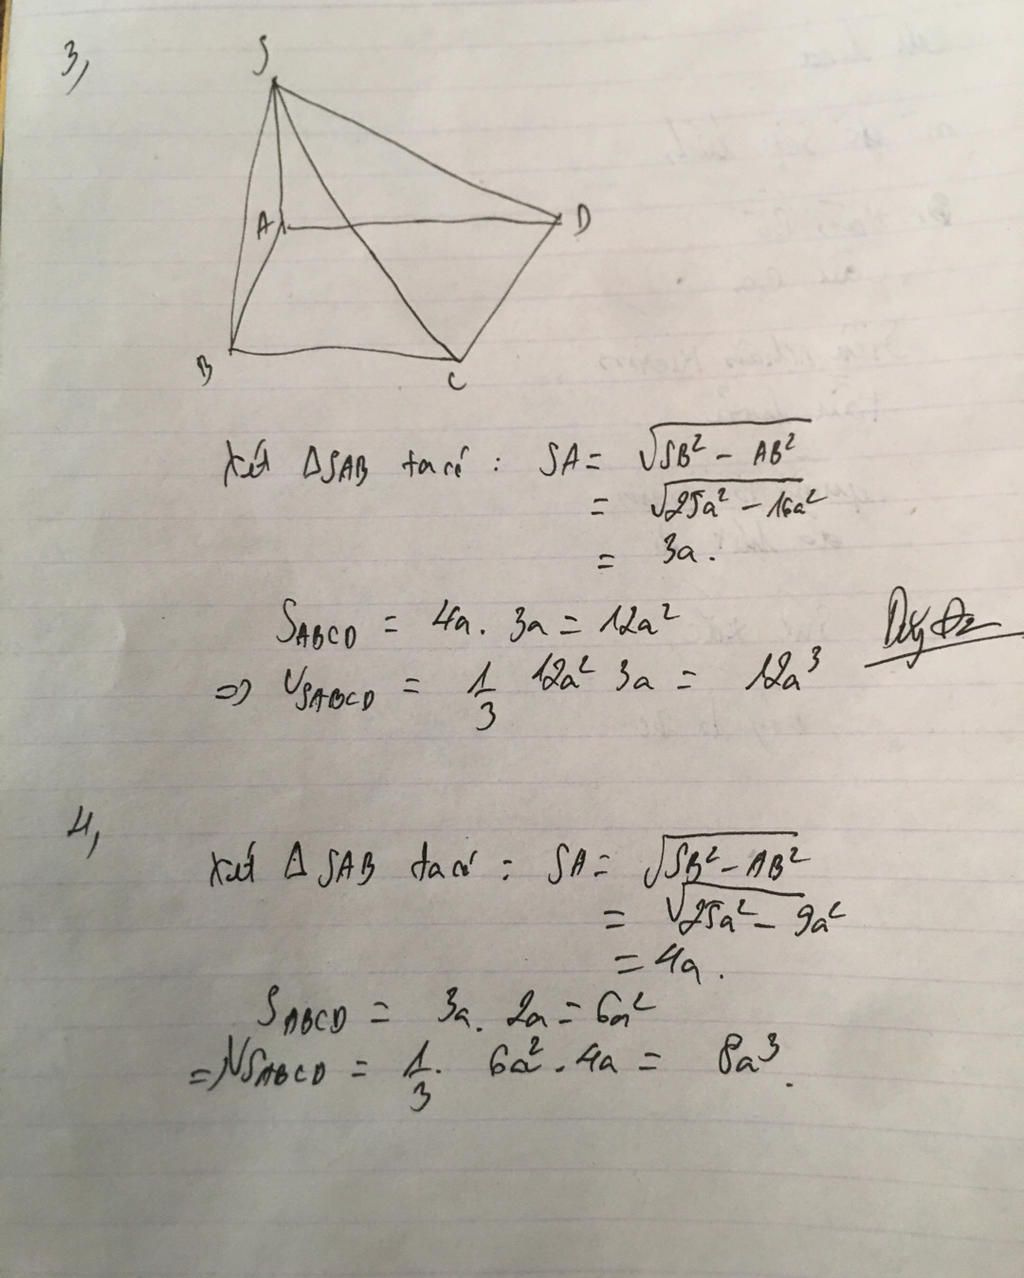 3,
S
A
D
B
C
Xét ΔSAB ta có : SA = √(SB² - AB²)
= √(25a² - 16a²)
= 3a.
S_ABCD = 4a. 3a = 12a²
=> V_SABCD = 1/3 12a² 3a = 12a³
4,
Xét Δ SAB ta có : SA = √(SB² - AB²)
= √(25a² - 9a²)
= 4a.
S_ABCD = 3a. 2a = 6a²
=> V_SABCD = 1/3. 6a². 4a = 8a³.